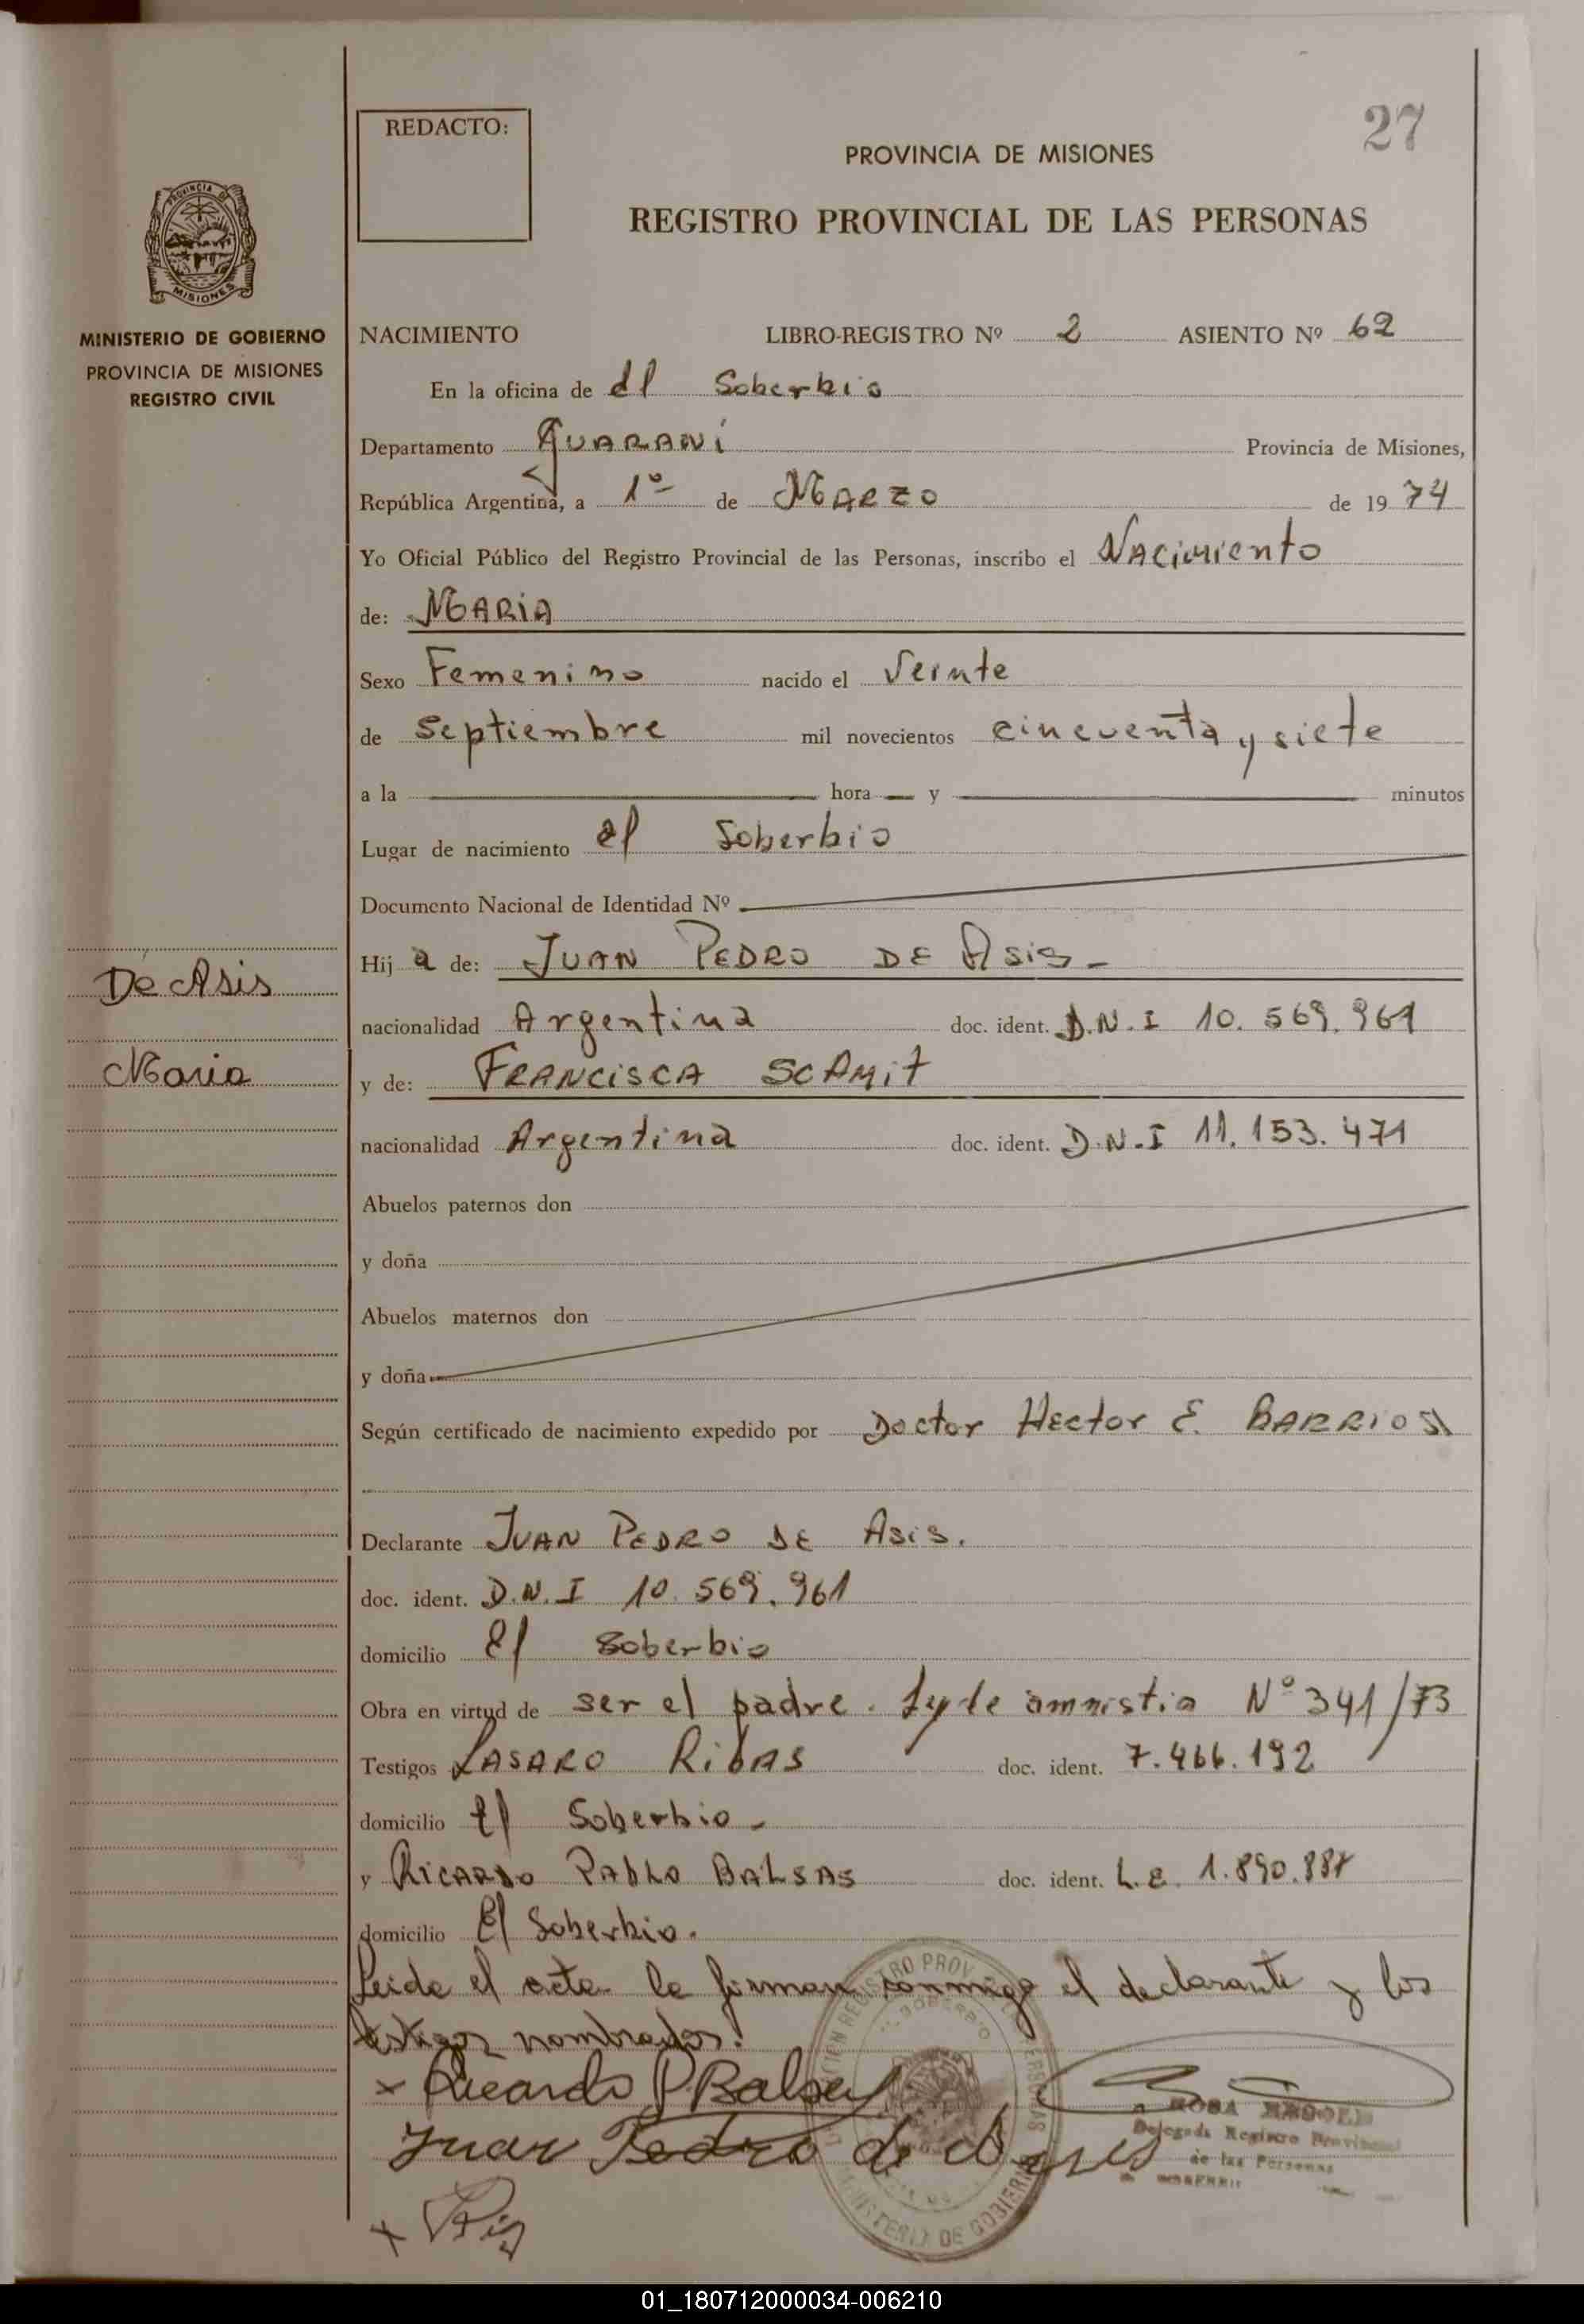 27
REDACTO:
PROVINCIA DE MISIONES
REGISTRO PROVINCIAL DE LAS PERSONAS
PROVINCIA DE
MISIONES
MINISTERIO DE GOBIERNO
PROVINCIA DE MISIONES
REGISTRO CIVIL
NACIMIENTO LIBRO-REGISTRO Nº 2 ASIENTO Nº 62
En la oficina de El Soberbio
Departamento GUARANí Provincia de Misiones,
República Argentina, a 1º de MARZO de 1974
Yo Oficial Público del Registro Provincial de las Personas, inscribo el NACimiento
de: MARiA
Sexo Femenino nacido el Veinte
de Septiembre mil novecientos cincuenta y siete
a la hora y minutos
Lugar de nacimiento el Soberbio
Documento Nacional de Identidad Nº
Hij a de: JUAN PEDRO DE Asis -
De Asis
nacionalidad Argentina doc. ident. D.N.I 10.569.961
Maria
y de: FRANCiSCA SCHMit
nacionalidad Argentina doc. ident. D.N.I 11.153.471
Abuelos paternos don
y doña
Abuelos maternos don
y doña
Según certificado de nacimiento expedido por Doctor Hector E. BARRIOS
Declarante JUAN PEDRO DE Asis.
doc. ident. D.N.I 10.569.961
domicilio El Soberbio
Obra en virtud de ser el padre. Ley de amnistia Nº 341/73
Testigos LASARO RibAS doc. ident. 7.466.192
domicilio El Soberbio -
y RiCARDO PABLO BALSAS doc. ident. L.E. 1.890.887
domicilio El Soberbio.
Leida el acta la firman conmigo el declarante y los
testigos nombrados.
x Ricardo P Balsas
Juan Pedro de Asis
ROSA
Delegada Registro Provincial
de las Personas
MINISTERIO DE GOBIERNO
01_180712000034-006210